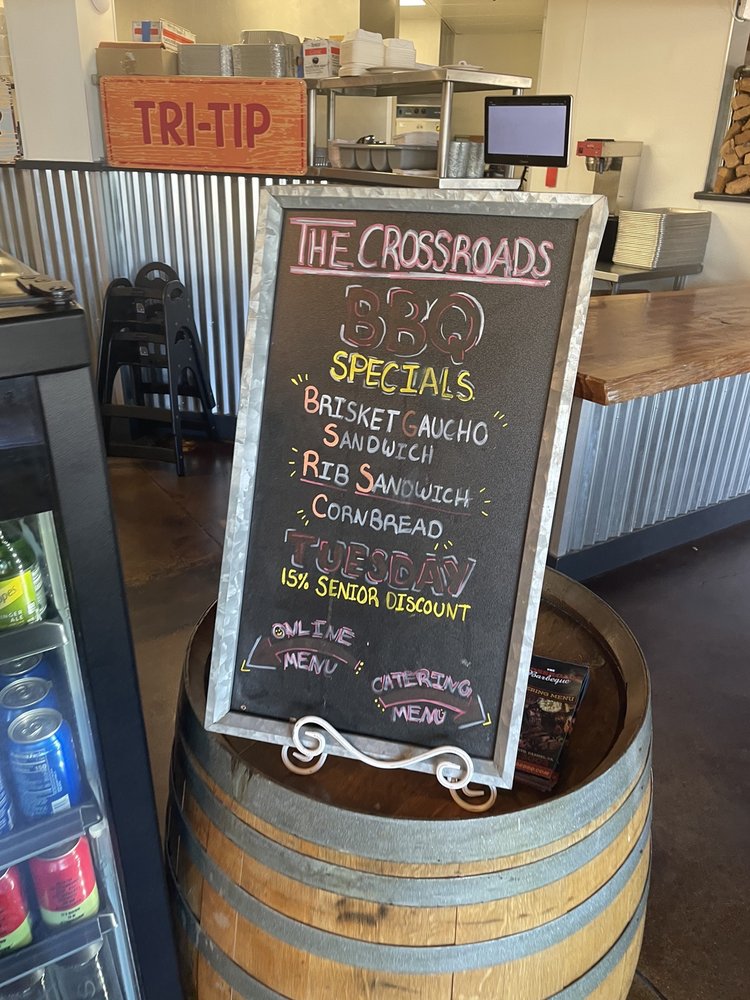 TRI-TIP
THE CROSSROADS
BBQ
SPECIALS
BRISKET GAUCHO
SANDWICH
RIB SANDWICH
CORNBREAD
TUESDAY
15% SENIOR DISCOUNT
ONLINE
MENU
CATERING
MENU
Barbeque
MENU
GINGER
ALE